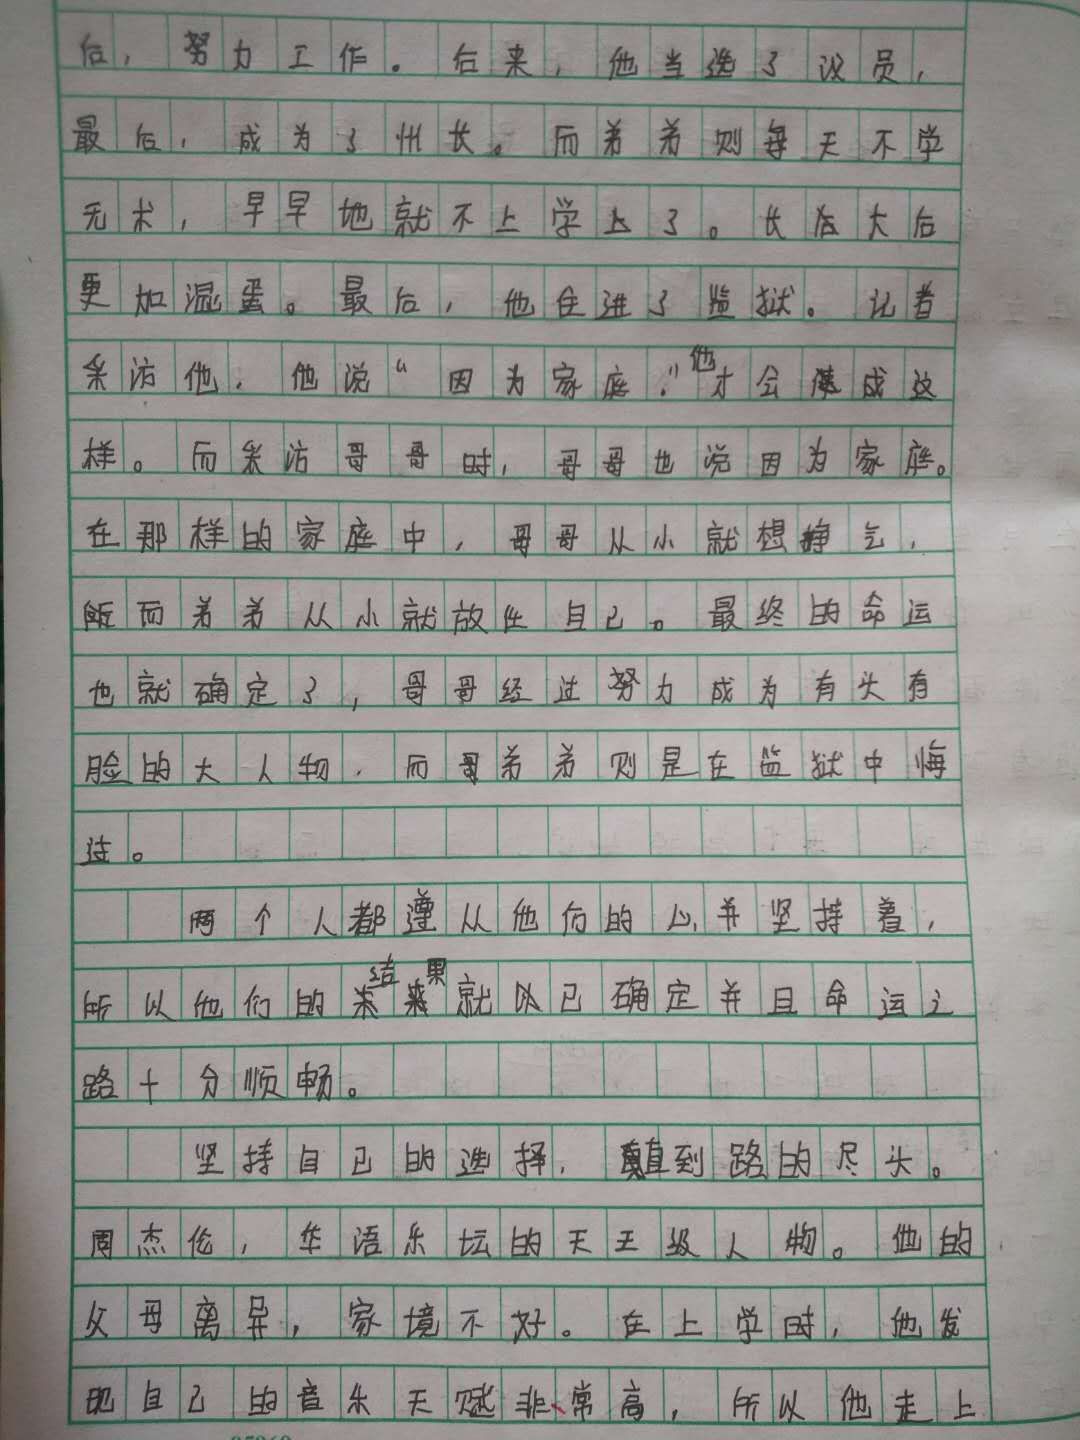 后，努力工作。后来，他当选了议员，
最后，成为了州长。而弟弟则每天不学
无术，早早地就不上学上了。长后大后
更加混蛋。最后，他住进了监狱。记者
采访他，他说“因为家庭。”他才会变成这
样。而采访哥哥时，哥哥也说因为家庭。
在那样的家庭中，哥哥从小就想挣气，
而弟弟从小就放任自己。最终的命运
也就确定了，哥哥经过努力成为有头有
脸的大人物，而弟弟则是在监狱中悔
过。
两个人都遵从他们的心并坚持着，
所以他们的结果就以已确定并且命运之
路十分顺畅。
坚持自己的选择，直到路的尽头。
周杰伦，华语乐坛的天王级人物。他的
父母离异，家境不好。在上学时，他发
现自己的音乐天赋非常高，所以他走上